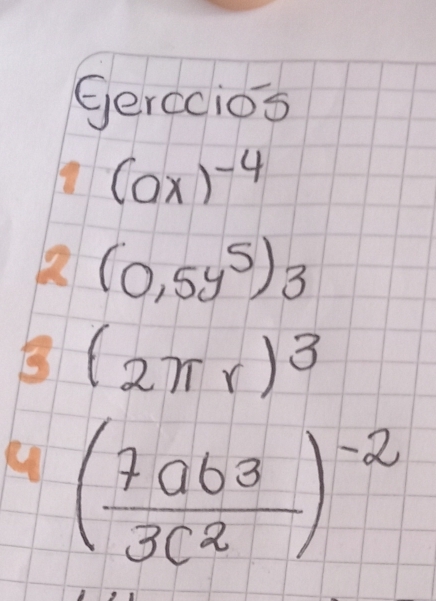 Ejerccios
1 (ax)⁻⁴
2 (0,5y⁵)₃
3 (2πr)³
4 (7ab3/3c²)⁻²